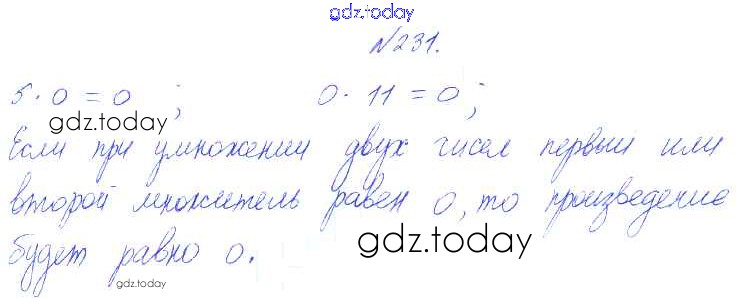 gdz.today
№231.
5 · 0 = 0 ; 0 · 11 = 0 ;
gdz.today
Если при умножении двух чисел первый или
второй множитель равен 0, то произведение
будет равно 0.
gdz.today
gdz.today